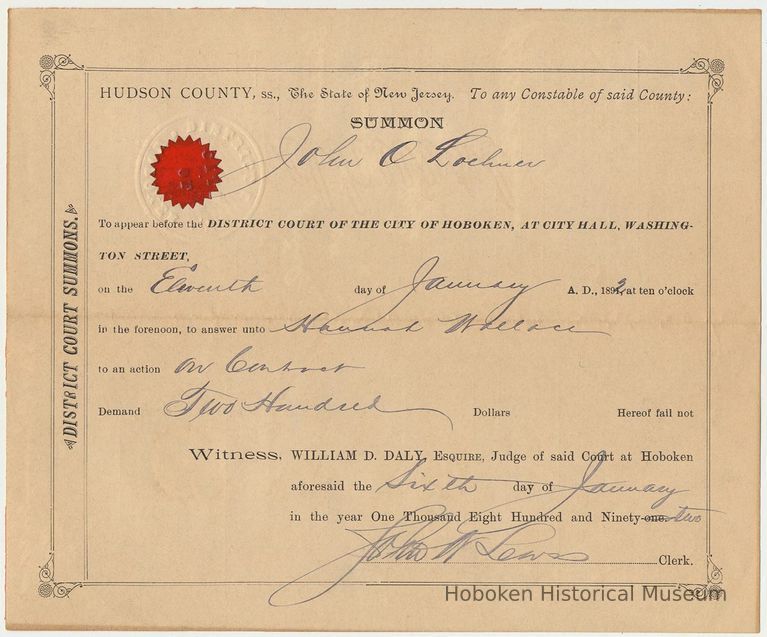 HUDSON COUNTY, ss., The State of New Jersey. To any Constable of said County:
SUMMON
John O Lochner
To appear before the DISTRICT COURT OF THE CITY OF HOBOKEN, AT CITY HALL, WASHING-
TON STREET,
on the Eleventh day of January A. D., 1892, at ten o'clock
in the forenoon, to answer unto Hannah Wallace
to an action on Contract
Demand Two Hundred Dollars Hereof fail not
Witness, WILLIAM D. DALY, ESQUIRE, Judge of said Court at Hoboken
aforesaid the Sixth day of January
in the year One Thousand Eight Hundred and Ninety-one. two
John W Lewis Clerk.
DISTRICT COURT SUMMONS.
Hoboken Historical Museum